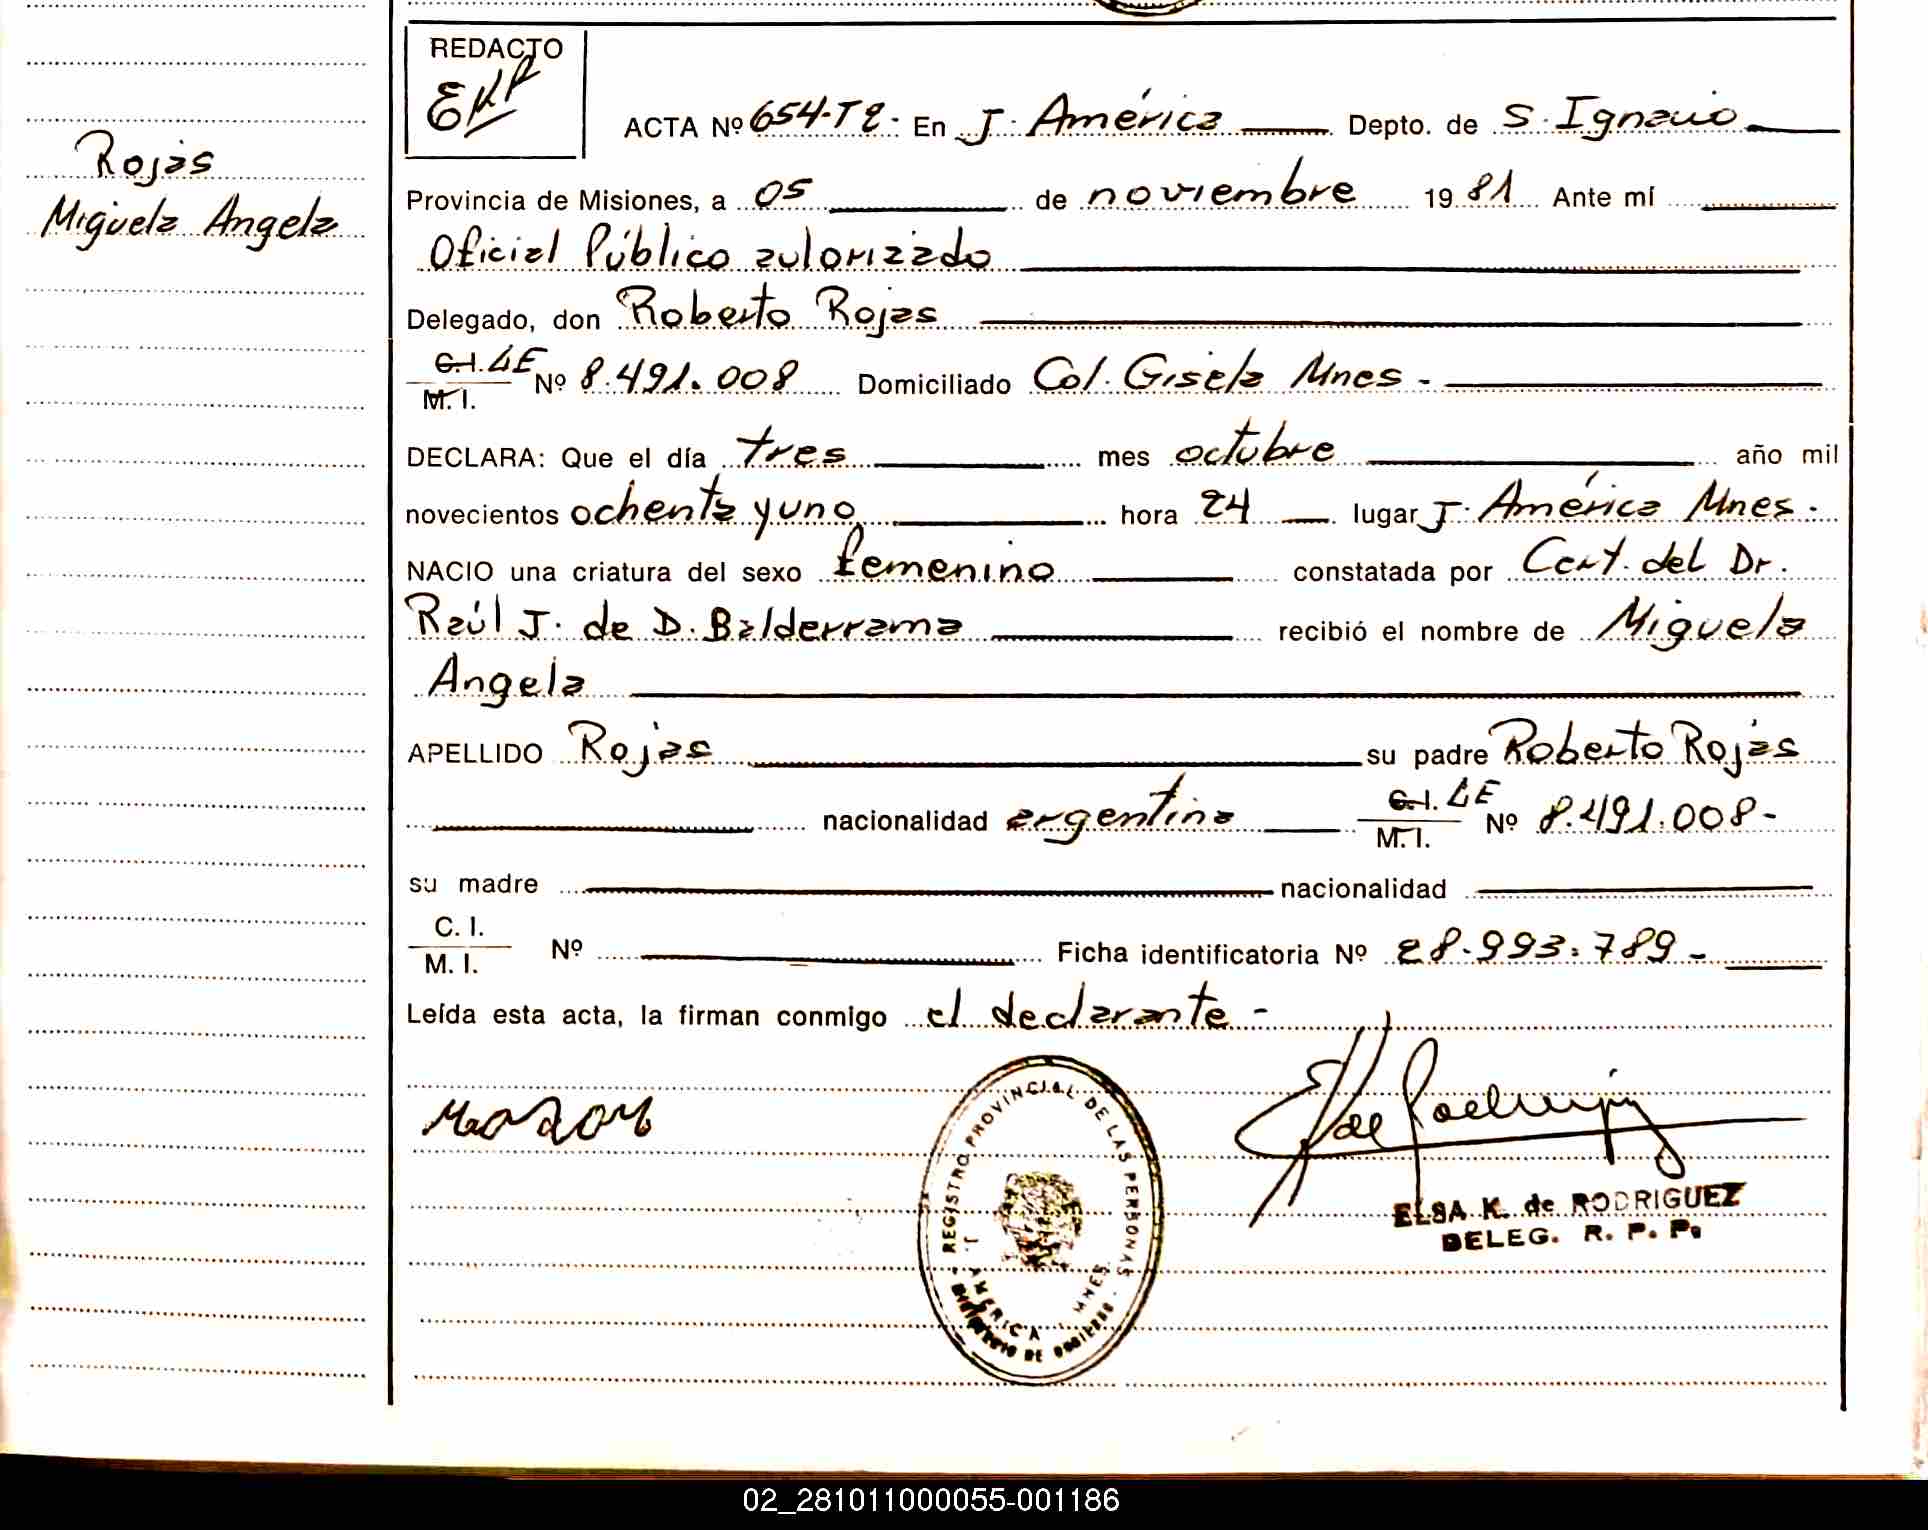 REDACTO
EKR
ACTA Nº 654-T2- En J. América Depto. de S. Ignacio
Rojas
Miguela Angela
Provincia de Misiones, a 05 de noviembre 1981 Ante mí
Oficial Público autorizado
Delegado, don Roberto Rojas
C.I. LE
M.I. Nº 8.491.008 Domiciliado Col. Gisela Mnes -
DECLARA: Que el día tres mes octubre año mil
novecientos ochenta y uno hora 24 lugar J. América Mnes.
NACIO una criatura del sexo femenino constatada por Cert. del Dr.
Raúl J. de D. Balderrama recibió el nombre de Miguela
Angela
APELLIDO Rojas su padre Roberto Rojas
nacionalidad argentina C.I. LE M.I. Nº 8.491.008-
su madre nacionalidad
C. I.
M. I. Nº Ficha identificatoria Nº 28.993.789-
Leída esta acta, la firman conmigo el declarante -
REGISTRO PROVINCIAL DE LAS PERSONAS
J. AMERICA MNES.
MINISTERIO DE GOBIERNO
ELSA K. de RODRIGUEZ
DELEG. R. P. P.
02_281011000055-001186